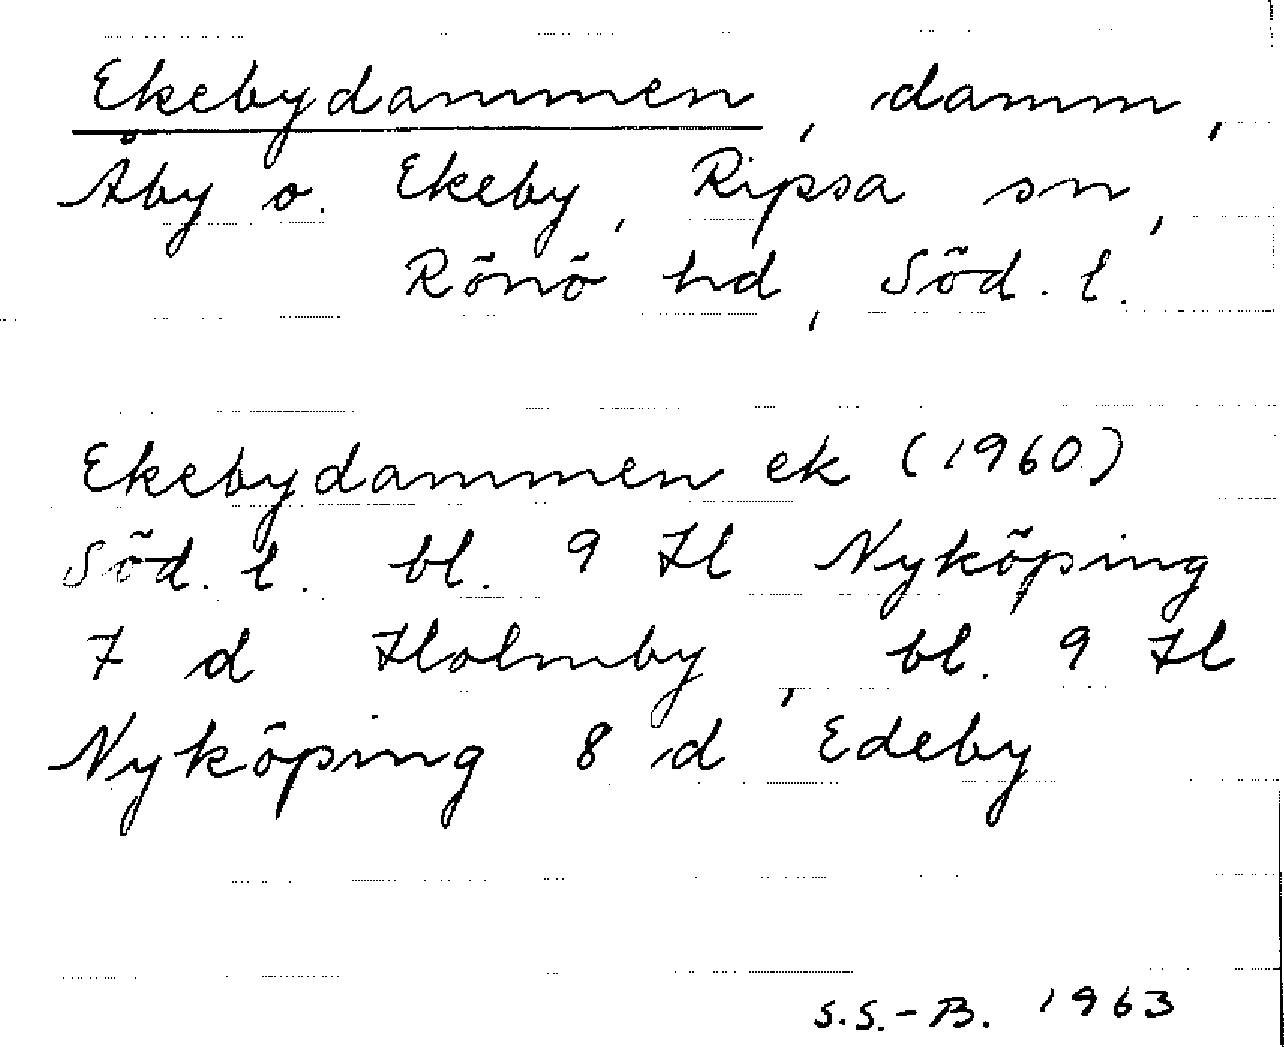 Ekebydammen, damm,
Åby o. Ekeby, Ripsa sn,
Rönö hd, Söd. l.
Ekebydammen ek (1960)
Söd. l. bl. 9 H Nyköping
7 d Holmby, bl. 9 H
Nyköping 8 d Edeby
S.S.-B. 1963